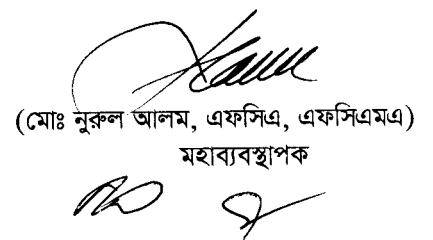 (মোঃ নুরুল আলম, এফসিএ, এফসিএমএ)
মহাব্যবস্থাপক